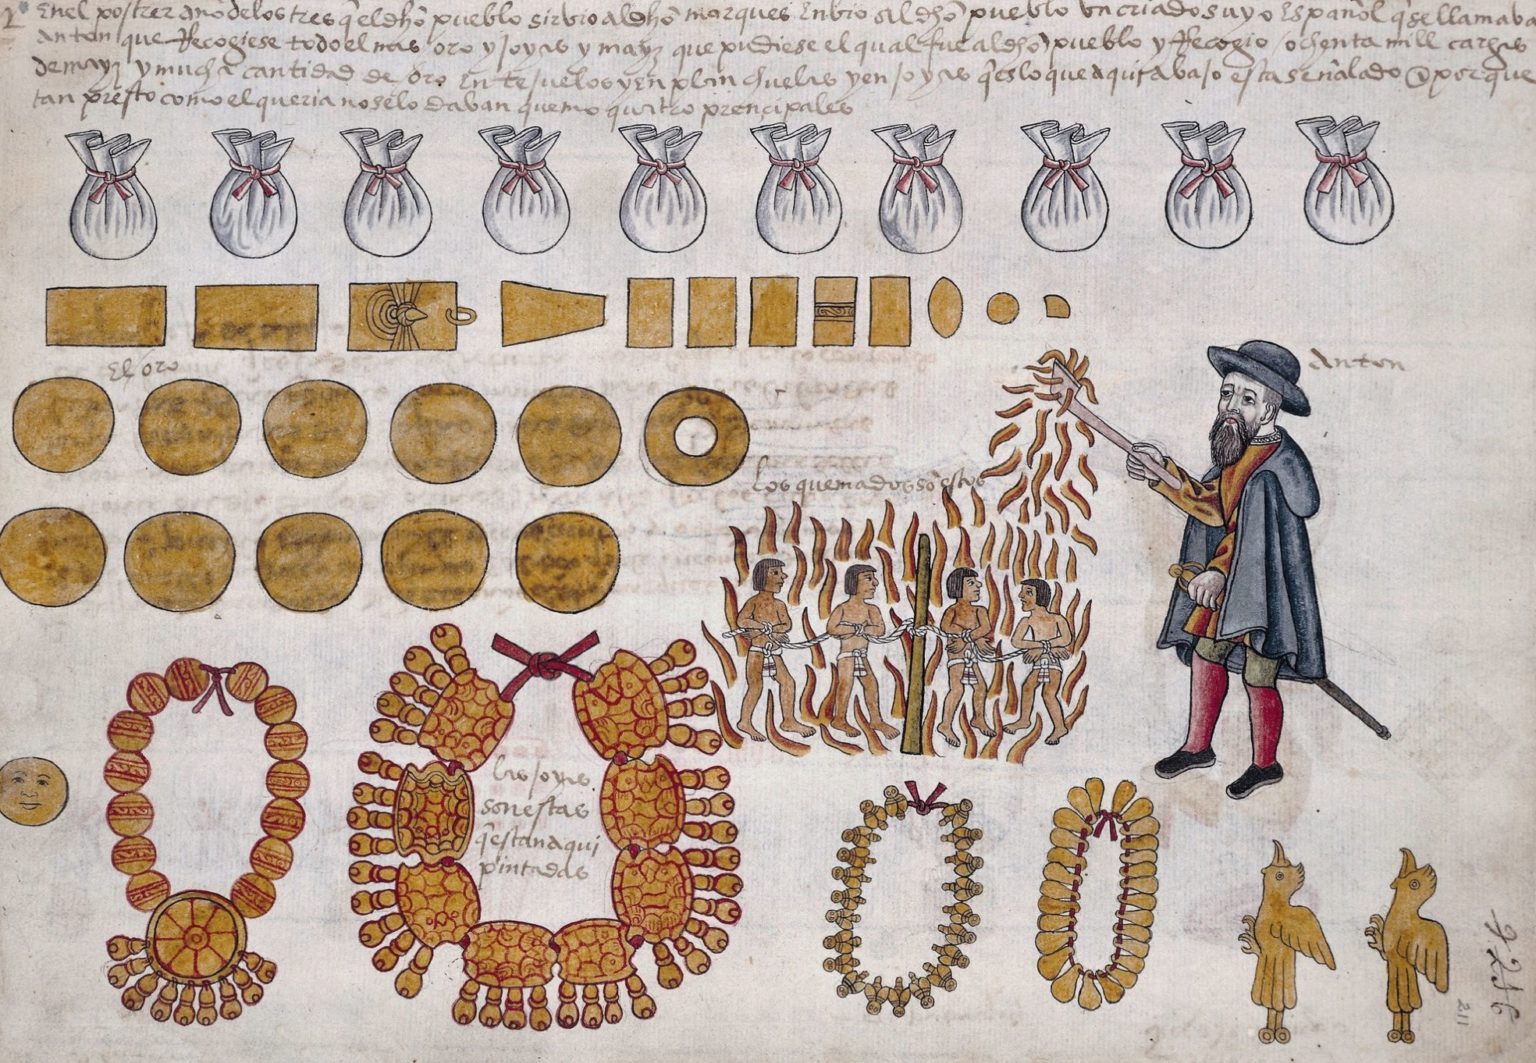 2º En el postrer año de los tres q̃ el dhõ pueblo sirvio al dhõ marques Enbio al dhõ pueblo un criado suyo Español q̃ se llamaba
anton que Recogiese todo el mas oro y joyas y mayz que pudiese el qual fue al dhõ pueblo y Recogio ochenta mill cargas
de mayz y mucha cantidad de oro En tejuelos y en planchuelas y en joyas q̃ es lo que aqui abajo esta señalado @ porque
tan presto como el queria no se lo daban quemo quatro prencipales
El oro
anton
los quemados sõ estos
las joyas
son estas
q̃ estan aqui
pintadas
211